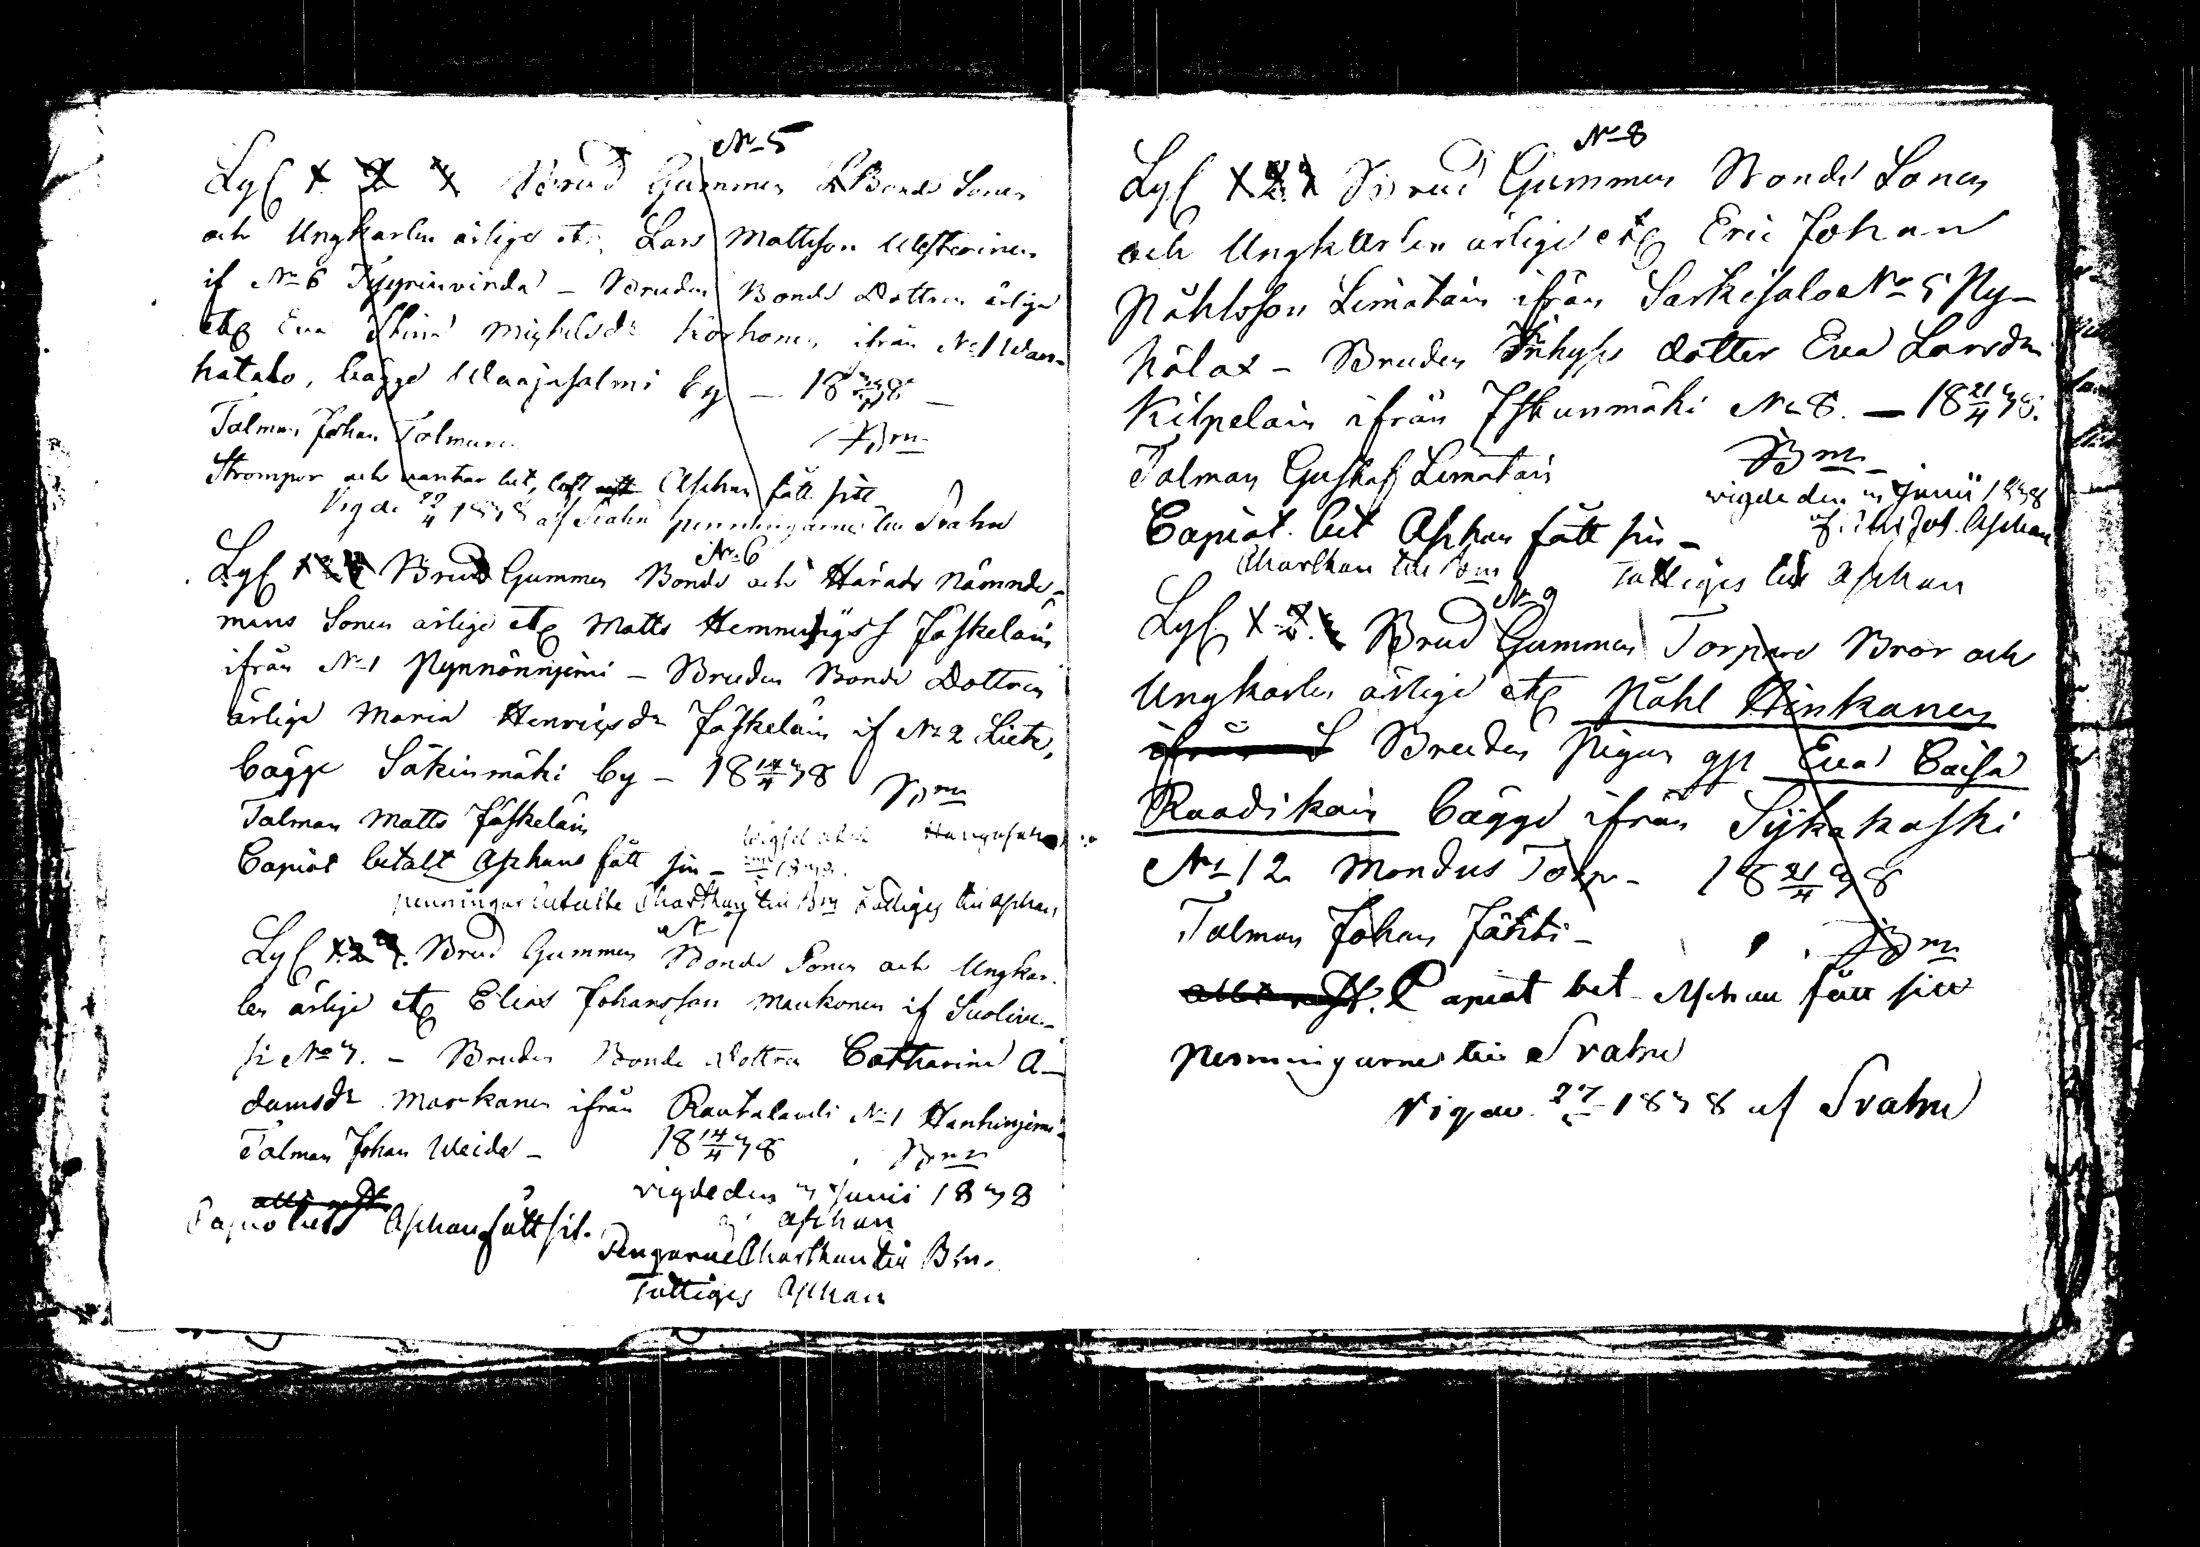 No 5
Lysf 1 2 3 Brud Gummen Bonde Sonen
och Ungkarlen ärlige etc Lars Mattsson Westerinen
if No 6 Pyyrinvirda - Bruden Bonde Dottren ärliga
etc Eva Stina Michelsdr Korhonen ifrån No 1 Wan-
hatalo, bägge Waajasalmi by - 18 38 -
Talman Johan Tolmunen Bm
Strompor och vantar bet, Aschan fått sitt
Vigde 22/4 1838 af Svahn penningarne till Svahn
No 6
Lysf 1 2 3 Brud Gummen Bonde och Härads Nämnde-
mans Sonen ärlige etc Matts Hemmingss Jäskeläin
ifrån No 1 Pynnönnjemi - Bruden Bonde Dottren
ärliga Maria Henrigsdr Jäskeläin if No 2 Liete,
bägge Säkinmäki by - 18 14/4 38 Bm
Talman Matts Jäskeläin
Capiat betalt Aschans fått sin - 1838.
penningar betalte Charthan till Bm Fattiges till Aschan
No 7
Lysf 1. 2 3. Brud Gummen Bonde Sonen och Ungkar-
len ärlige etc Elias Johansson Maukonen if Suolive-
si No 3. - Bruden Bonde Dottren Catharina A-
damsdr Markanen ifrån Rautalambi No 1 Hankinjemi
Talman Johan Weide - 18 14/4 38 Bm
vigde den 3 Junii 1838
af Aschan
Capiat bet Aschan fått sit.
Pengarne Charthan till Bm.
Fattiges Aschan
No 8
Lysf 1 2 3 Brud Gummen Bonde Sonen
och Ungkarlen ärlige etc Eric Johan
Påhlsson Limatain ifrån Särkisalo No 5 Ny-
hälax - Bruden Inhyses dotter Eva Larsdr
Kilpeläin ifrån Iskunmäki No 8. - 18 21/4 38.
Talman Gustaf Limatain Bm
vigde den Junii 1838
Capiat bet Aschan fått sin - af Aschan
Charthan till Bm Fattiges till Aschan
No 9
Lysf 1. 2. 3 Brud Gummen Torpare Bror och
Ungkarlen ärlige etc Påhl Hinkanen
Bruden Pigan gp Eva Caisa
Raadikain bägge ifrån Sykäkoski
No 12 Mondus Torp - 18 21/4 38
Talman Johan Jätti - Bm
Capiat bet Aschan fått sitt
penningarne till Svahn
Vigde 27 1838 af Svahn